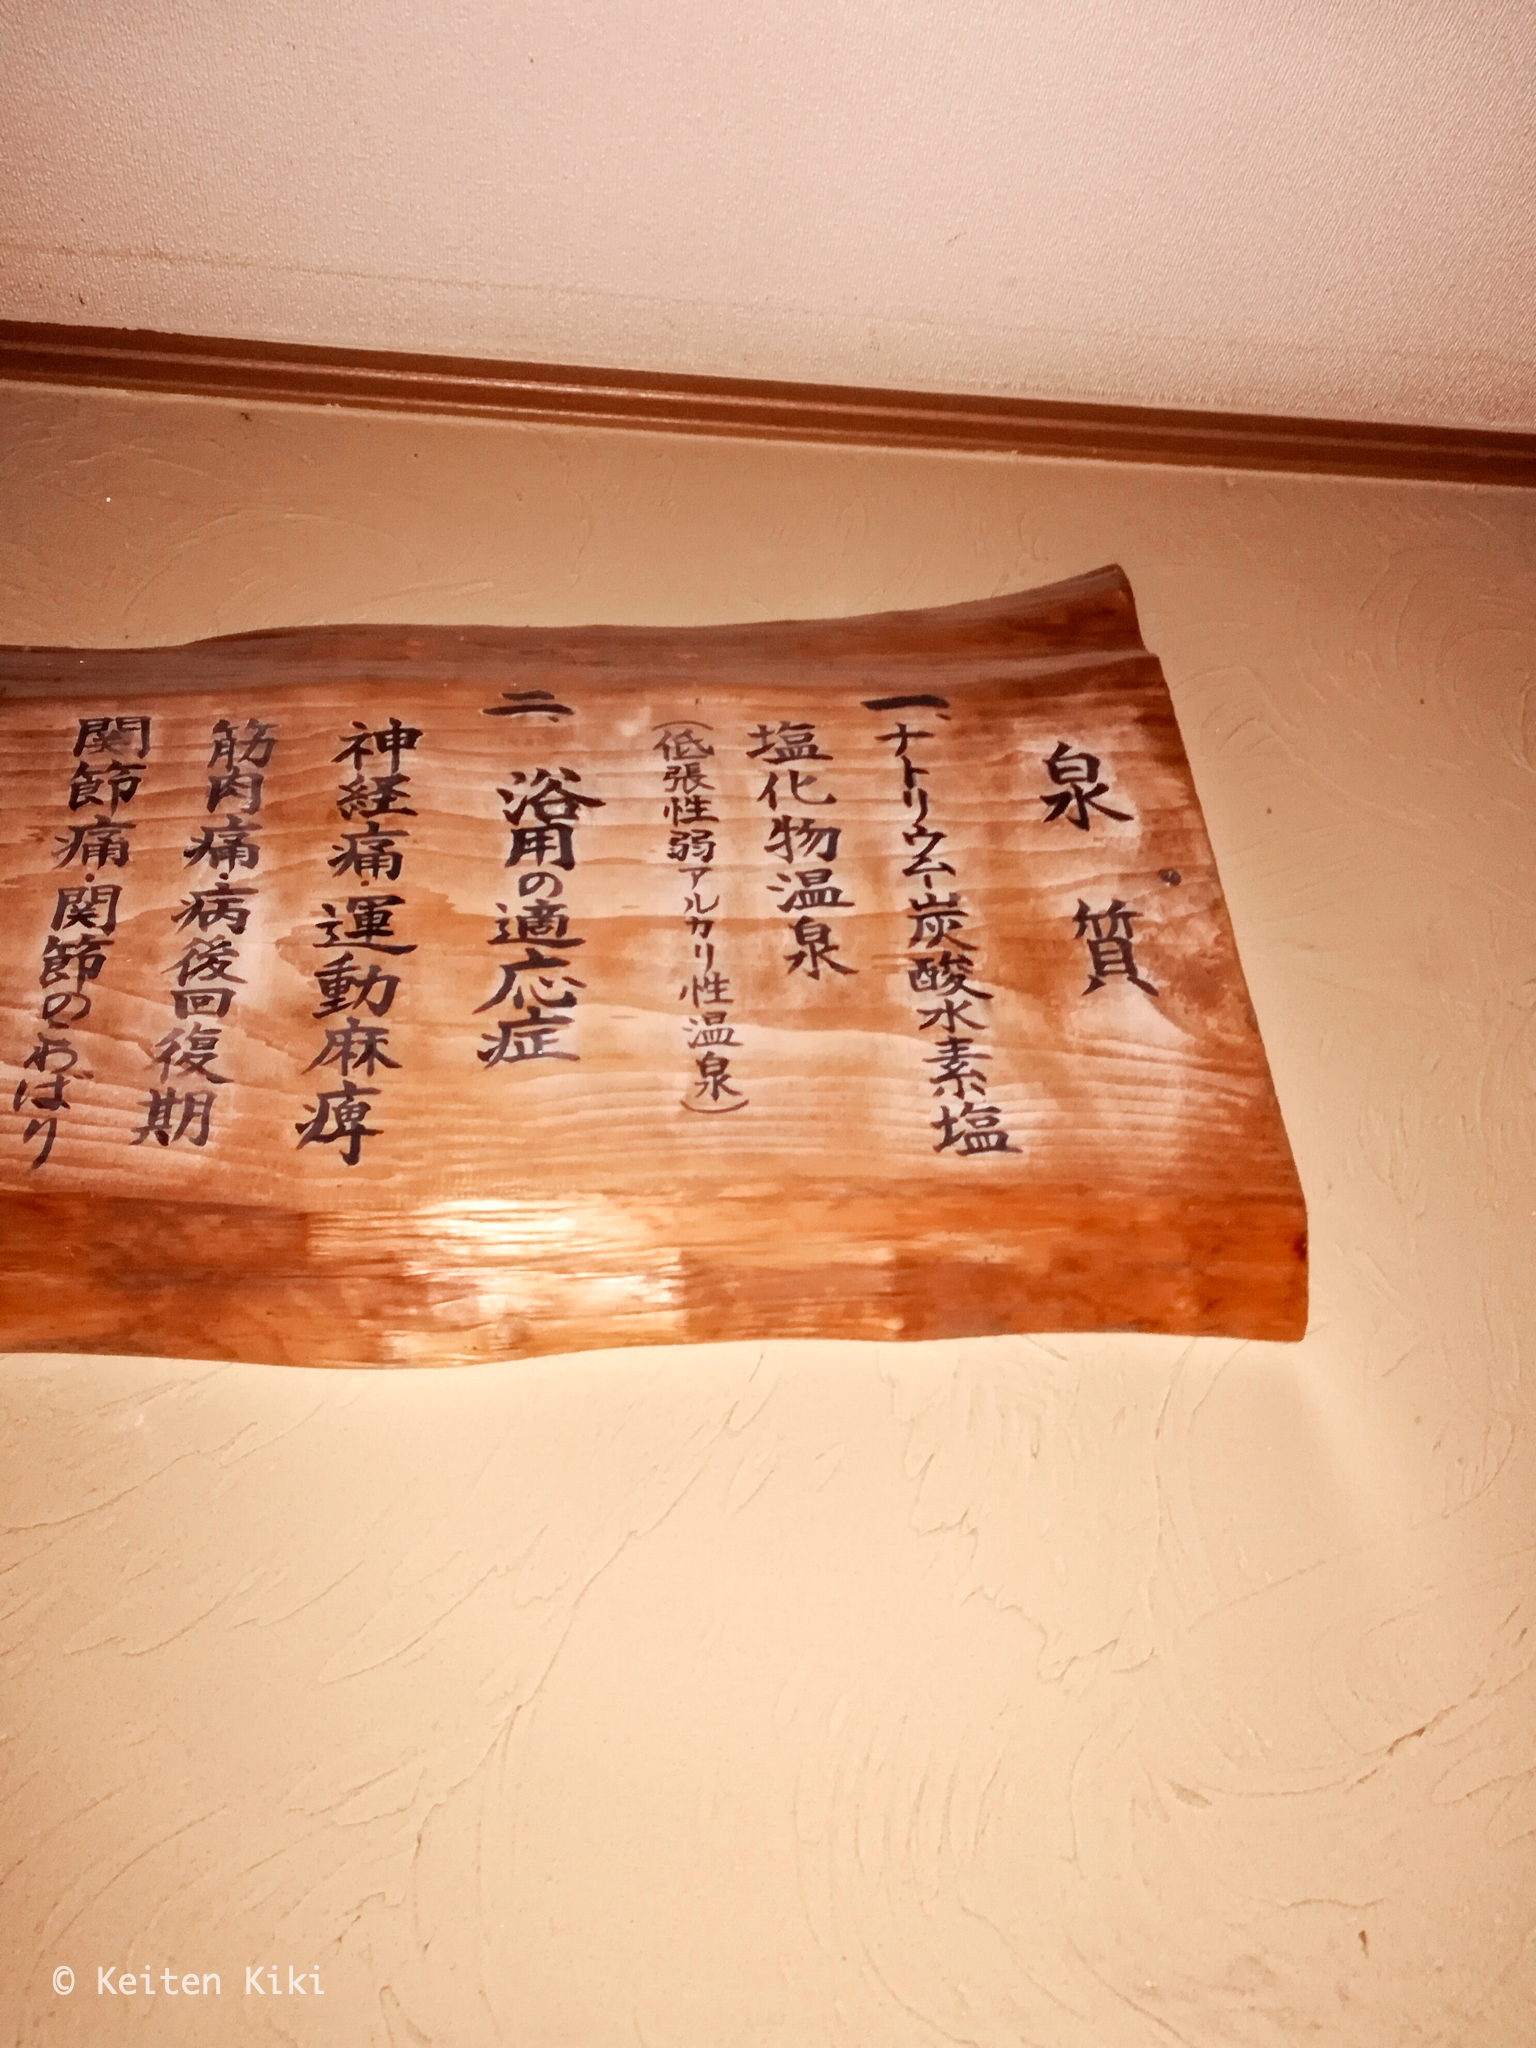 泉質
一、ナトリウムー炭酸水素塩
塩化物温泉
（低張性弱アルカリ性温泉）
二、浴用の適応症
神経痛・運動麻痺
筋肉痛・病後回復期
関節痛・関節のこわばり
© Keiten Kiki